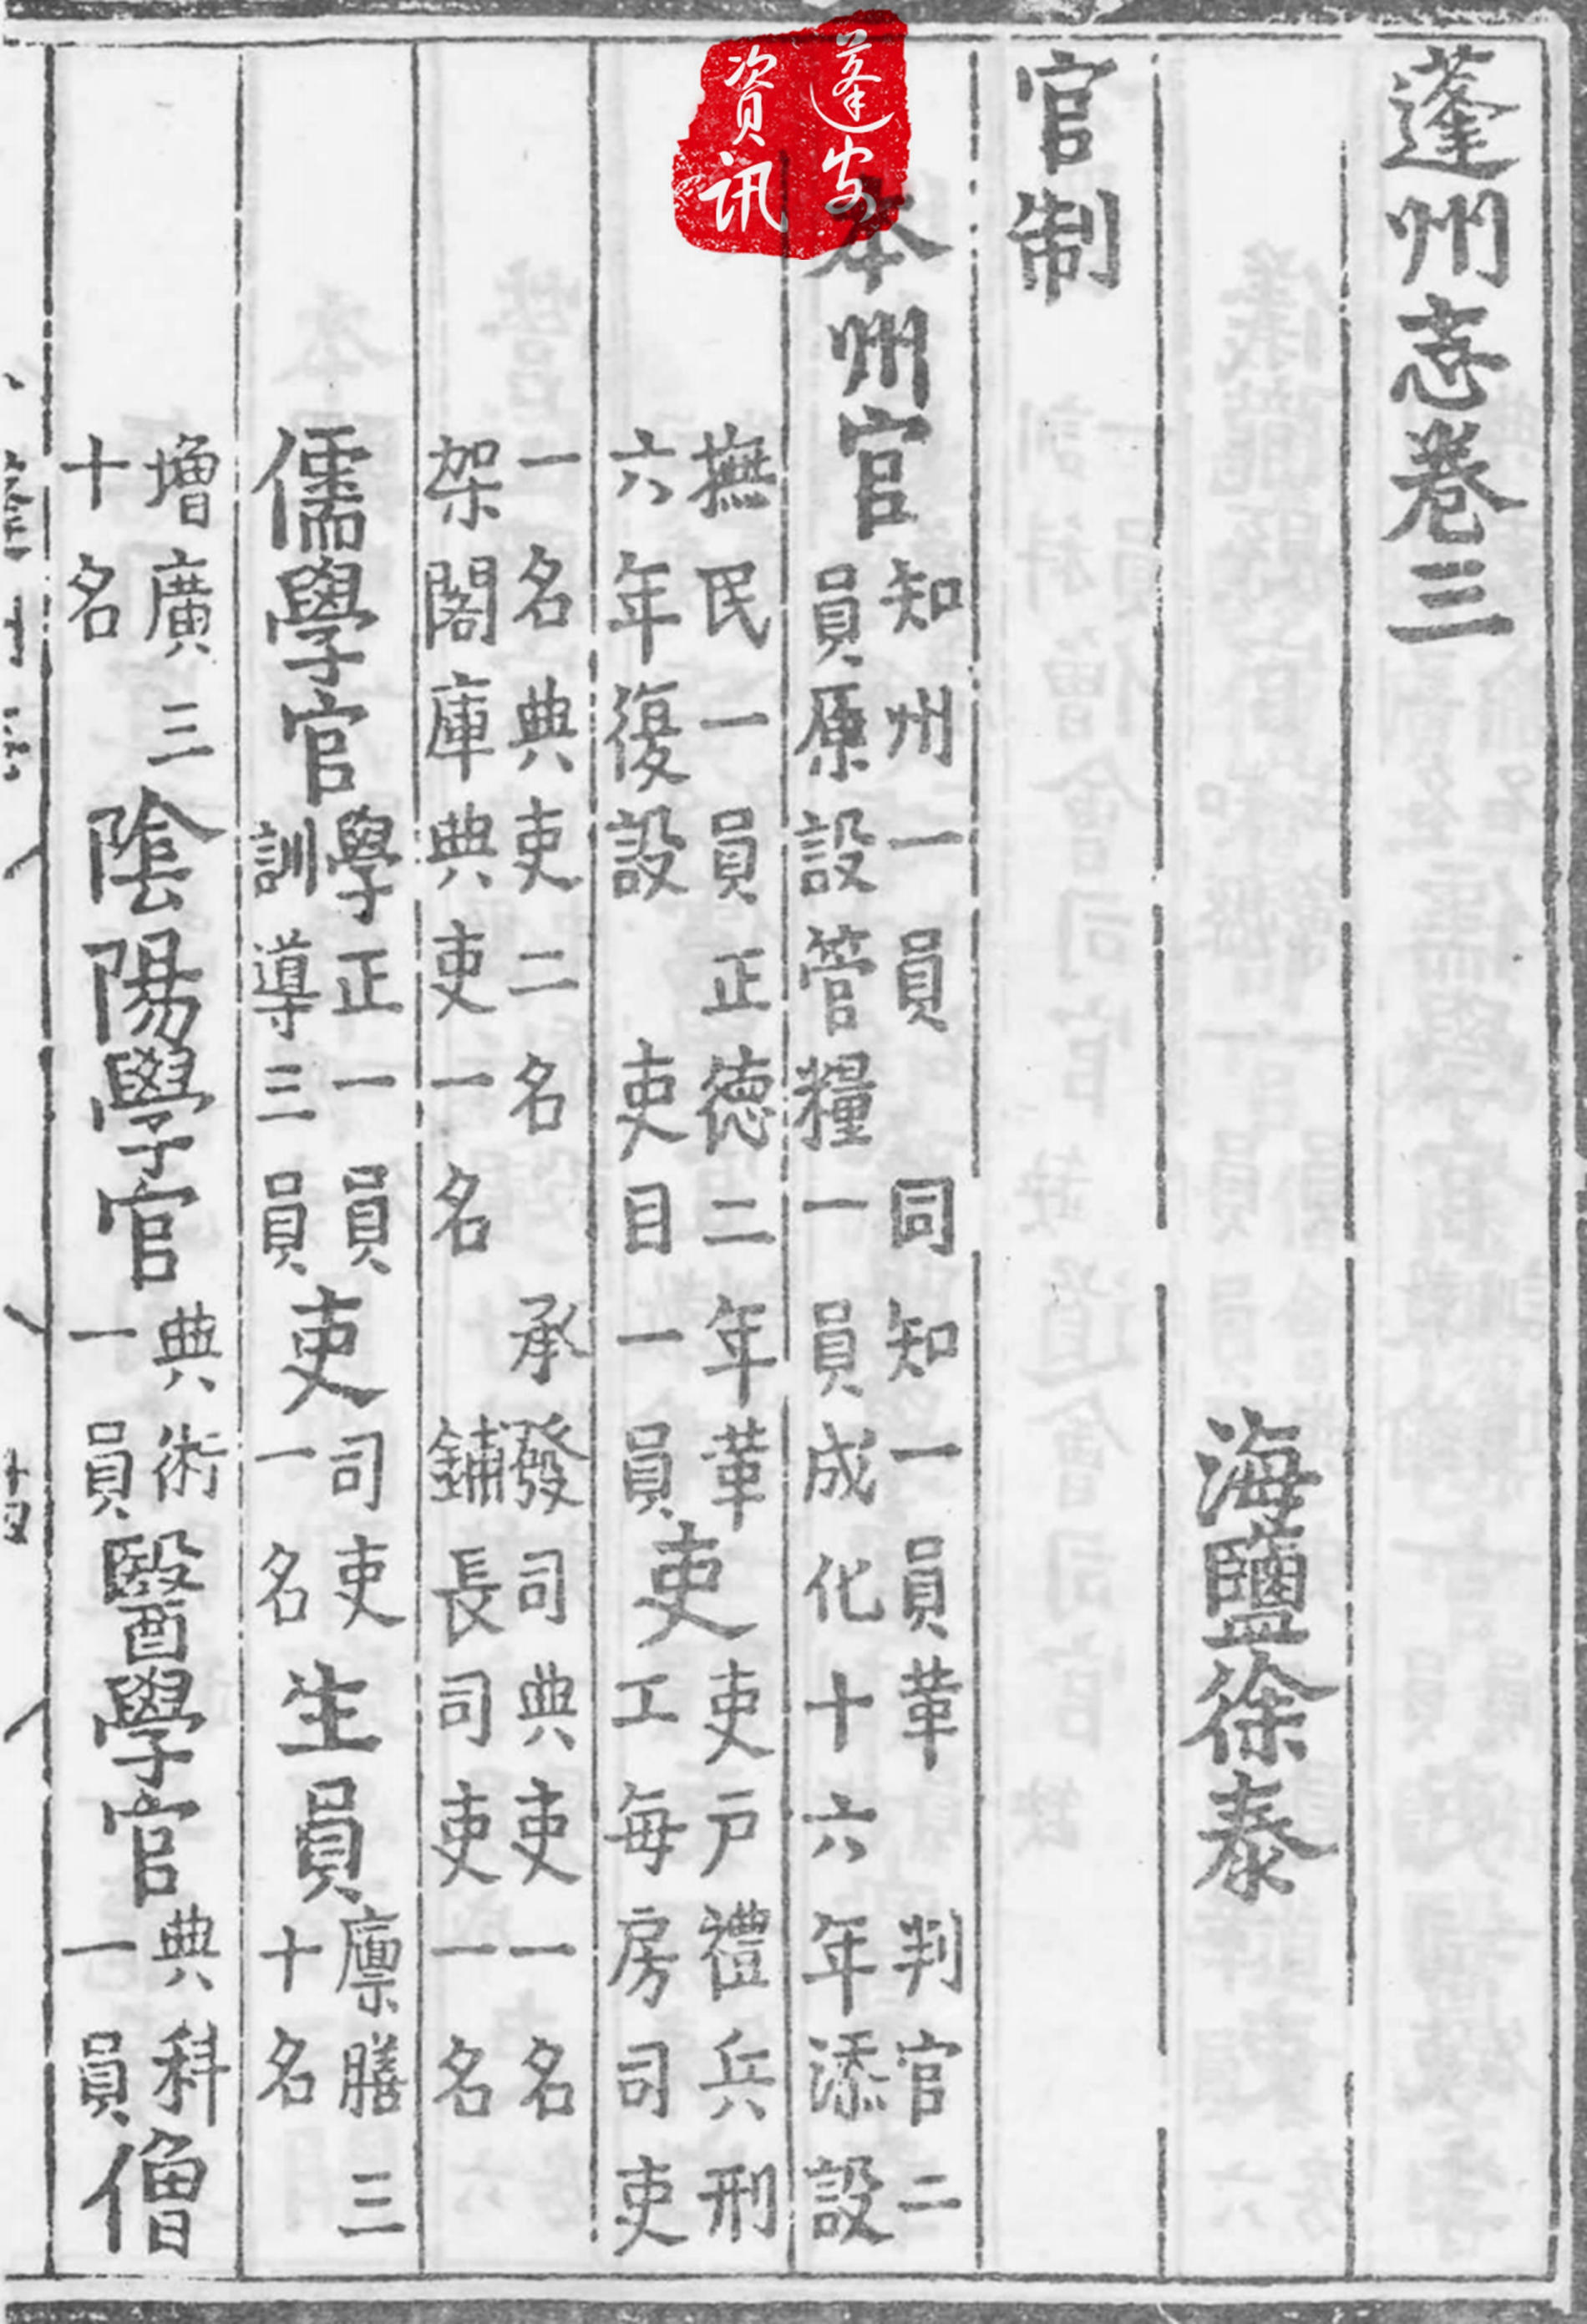 蓬州志卷三
海鹽徐泰
官制
本州官
知州一員 同知一員革 判官二
員原設管糧一員成化十六年添設
撫民一員正德二年革
六年復設 吏目一員
吏
吏戶禮兵刑
工每房司吏
一名典吏二名 承發司典吏一名
架閣庫典吏一名 鋪長司吏一名
儒學官
學正一員
訓導三員
吏
司吏
一名
生員
廩膳三
十名
增廣三
十名
陰陽學官
典術
一員
醫學官
典科
一員
僧
蓬安
資訊